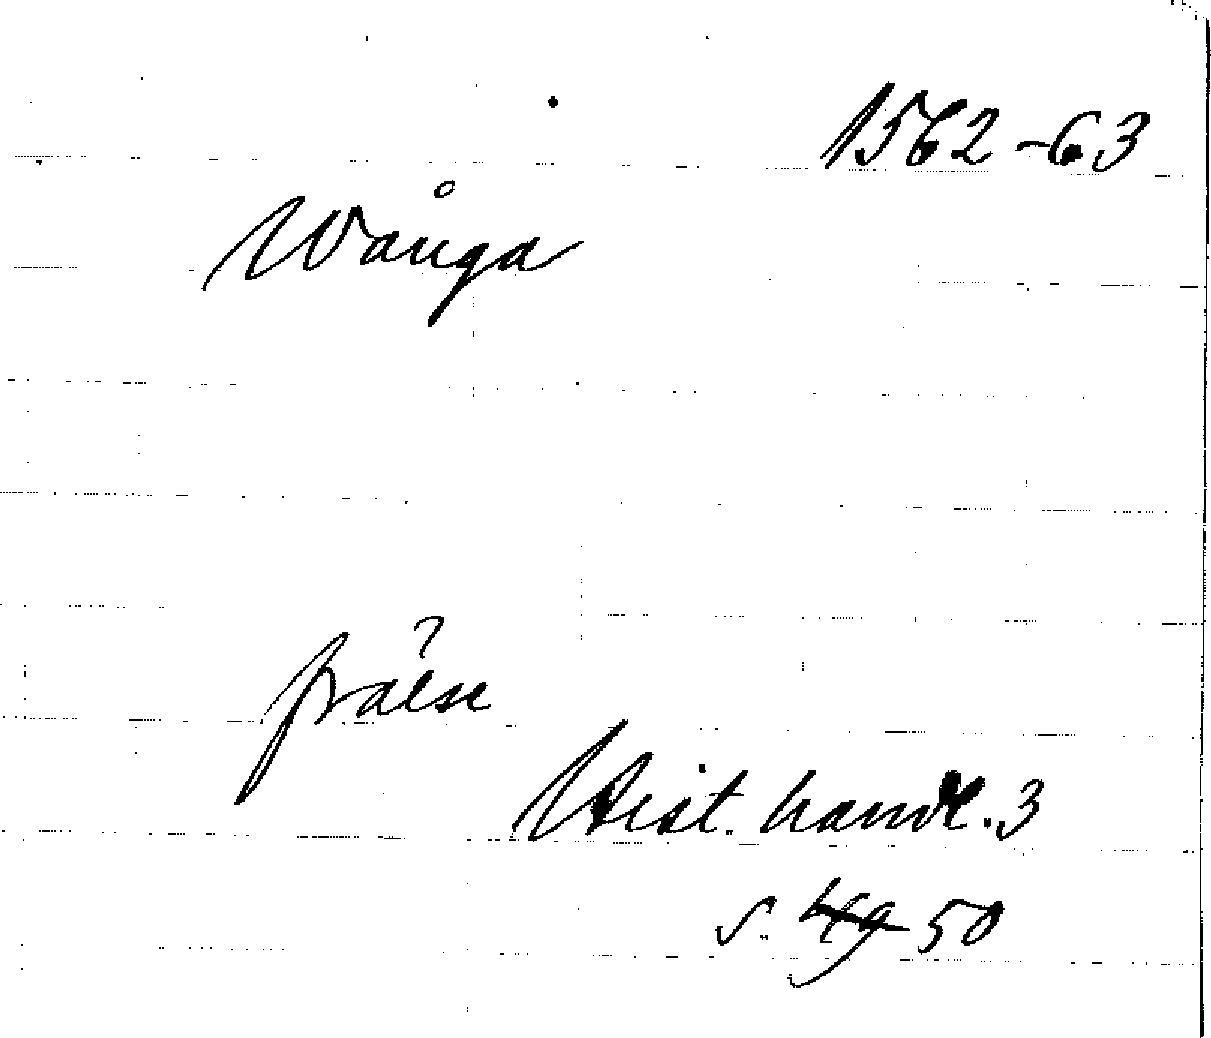 1562-63
Wånga
?
frälse
Hist. handl. 3
s. 49 50